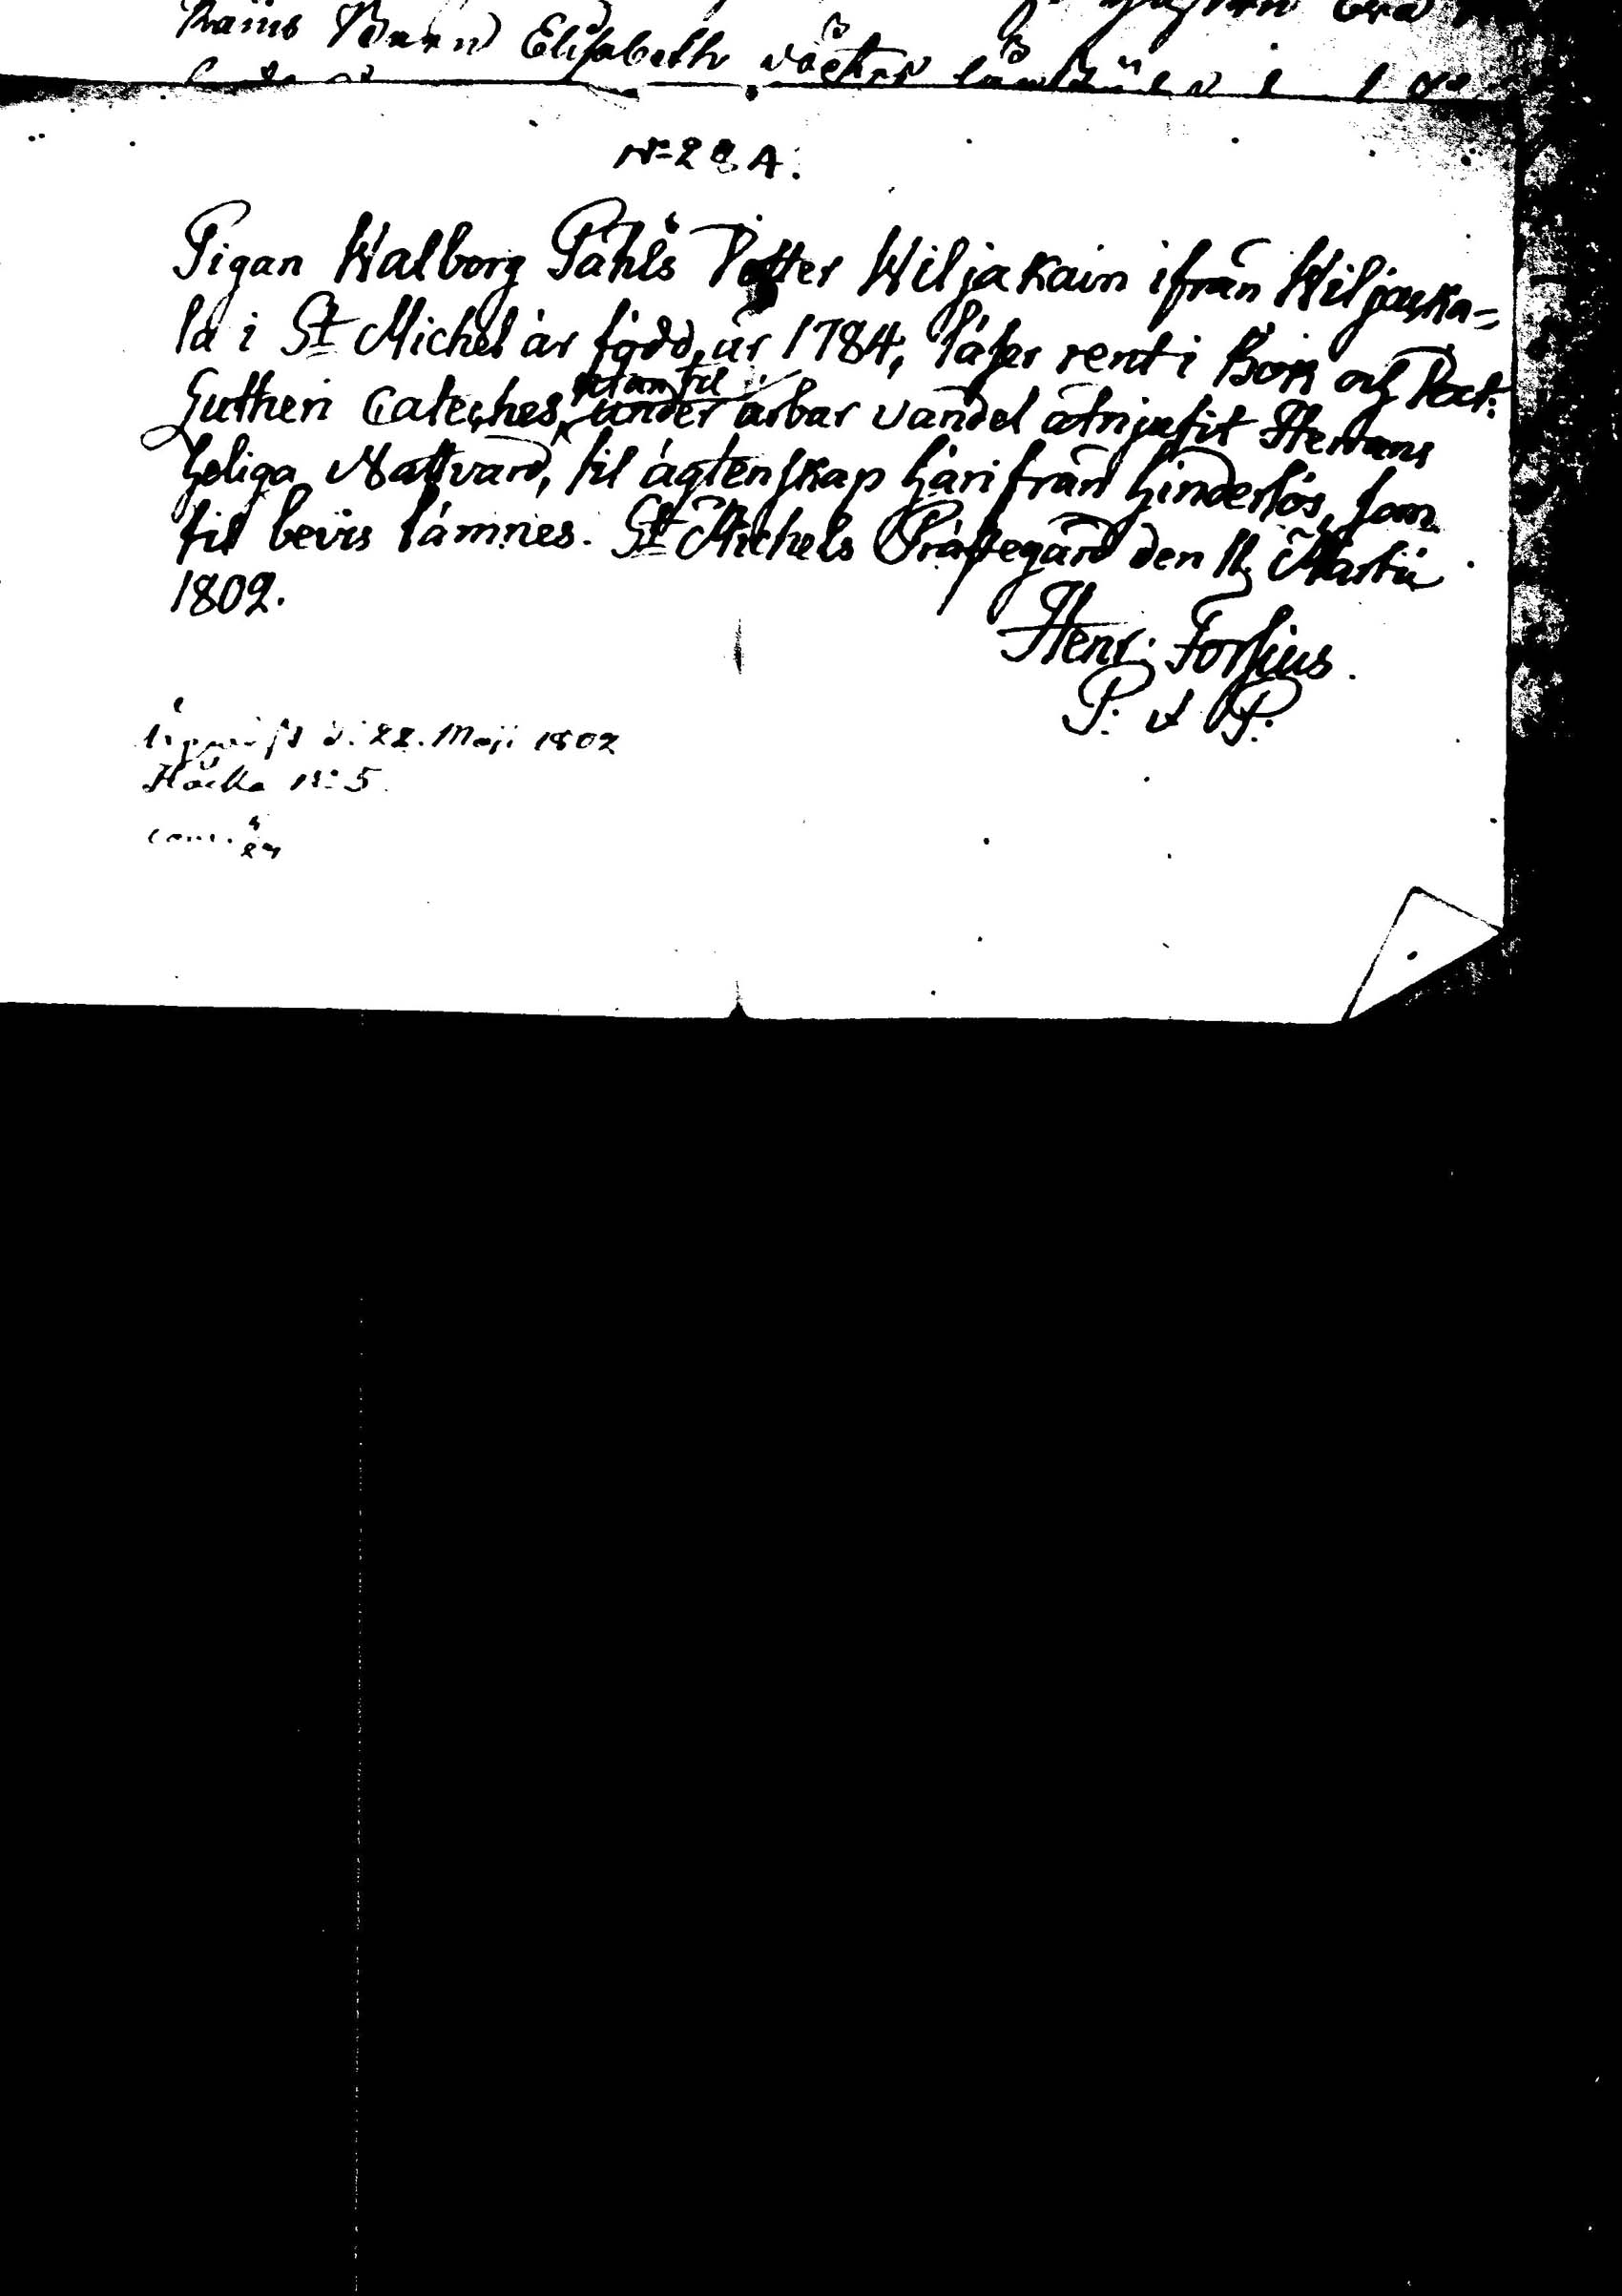 Barn Elisabeth
N=28 A.
Pigan Walborg Påhls Dotter Wiljakain ifrån Wiljaka=
la i St Michel är född år 1784, läser rent i Bok och Doct:
Lutheri Cateches, utantil under ärbar vandel åtnjutit Herrans
heliga Nattvard, til ägtenskap härifrån hinderlös, som
til bevis lämnes. St Michels Prästegård den 11 Martii
1802.
Henr: Forsius.
P. & P.
d. 22. Maji 1802
No 5.